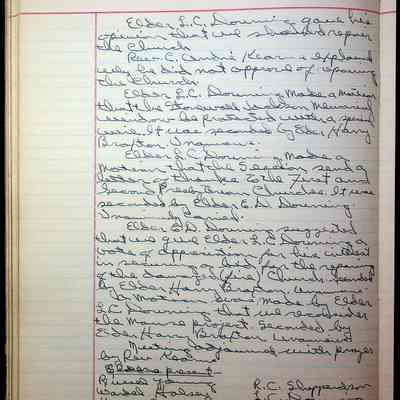 Elder L.C. Downing gave his
opinion that we should repair
the Church.
Rev. C. Andre Kearns explained
why he did not approve of repairing
the Church.
Elder L.C. Downing made a motion
that the Stonewall Jackson Memorial
window be protected with a
wire. It was seconded by Elder Harry
Braxton. Unanimous.
Elder L.C. Downing made a
motion that the Session send a
letter of thanks to the First and
Second Presbyterian Churches. It was
seconded by Elder E.D. Downing.
Unanimously Carried.
Elder E.D. Downing suggested
that we give Elder L.C. Downing a
vote of appreciation for his interest
in securing a bid for the repairing
of the damaged (fire) Church. Seconded
by Elder Harry Braxton. Unanimous.
A Motion was made by Elder
L.C. Downing that we reconsider
the Manse project. Seconded by
Elder Harry Braxton. Unanimous
Meeting adjourned with prayer
by Rev. Kearns
Elders present
Young
Halsey
R.C. Shepperdson
L.C. Downing